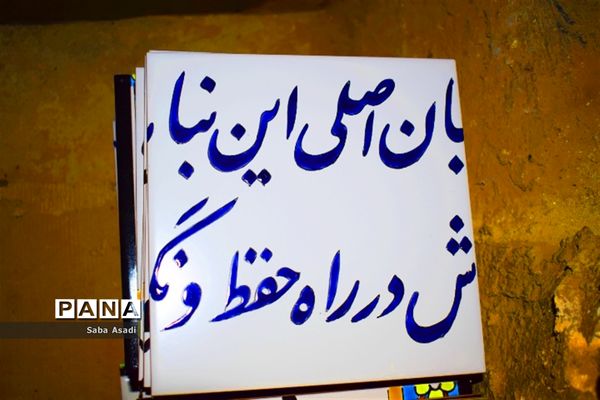 بان اصلی این بنا
ش در راه حفظ و نگ
PANA
Saba Asadi